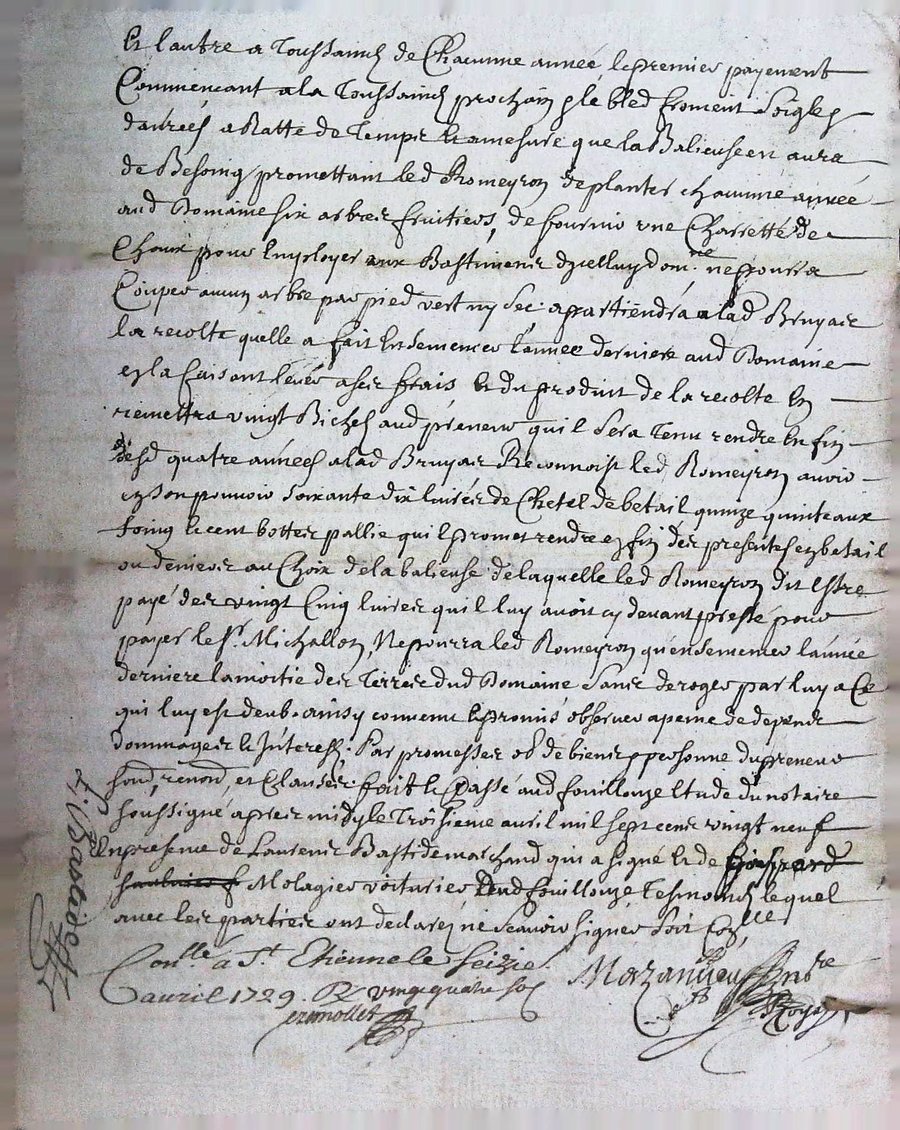 Et lautre a Toussainct de Chacunne année le premier payement
Commencant a la Toussainct prochain & le bled froment Soigle &
danrées a Ratte de Temps et amesure que la Balieuse en aura
de Besoing, promettant led Romeyron de planter chacunne année
aud Domaine six arbres fruitiers, de fournir une Charretté de
Chaux pour Employer aux Bastimens dycelluy dom.ne ne pourra
Couper aucun arbre par pied vert ny sec, apartiendra a lad Bruyair
la recolte quelle a fait Ensemencer Lannee derniere aud Domaine
en la faisant lever a ses frais et du produit de la recolte En
remettra vingt Bichets aud preneur quil sera tenu rendre En fin
desd quatre années a lad Bruyair Reconnoist led Romeyron avoir
en son pouvoir soixante dix livres de Chetel de betail quinze quinteaux
foing le cent bottes pallie quil promet rendre en fin des presentes en betail
ou deniers au Choix de la balieuse de laquelle led Romeyron dit Estre
payé des vingt Cinq livres quil luy avoit cy devant presté pour
payer le Sr. Michallon, Ne pourra led Romeyron quensemencer lannée
derniere la moitie des Terres dud Domaine Sans deroger par luy a Ce
qui luy est deub. ainsy convenu et promis observer a peine de depens
dommages et Interests, Par promesses ob de biens personne du preneur
soud, renond, et Clauses. fait et Passé aud fouillouze Etude du notaire
soussigné apres midy le Troisieme avril mil sept cens vingt neuf
En presence de Laurens Bastide marchand qui a signé et de
Molagier voiturier dud fouillouze Tesmoins lequel
avec les parties ont declaré ne scavoir signer Soit Con.lle
Con.lle a St Etienne le seizie.
avril 1729. R vingt quatre sols
L. Bastide